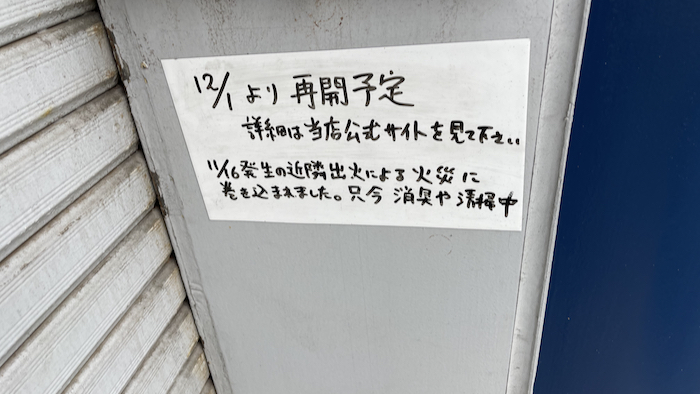 12/1 より 再開予定
詳細は当店公式サイトを見て下さい
11/16発生の近隣出火による火災に
巻き込まれました。只今 消臭や清掃中